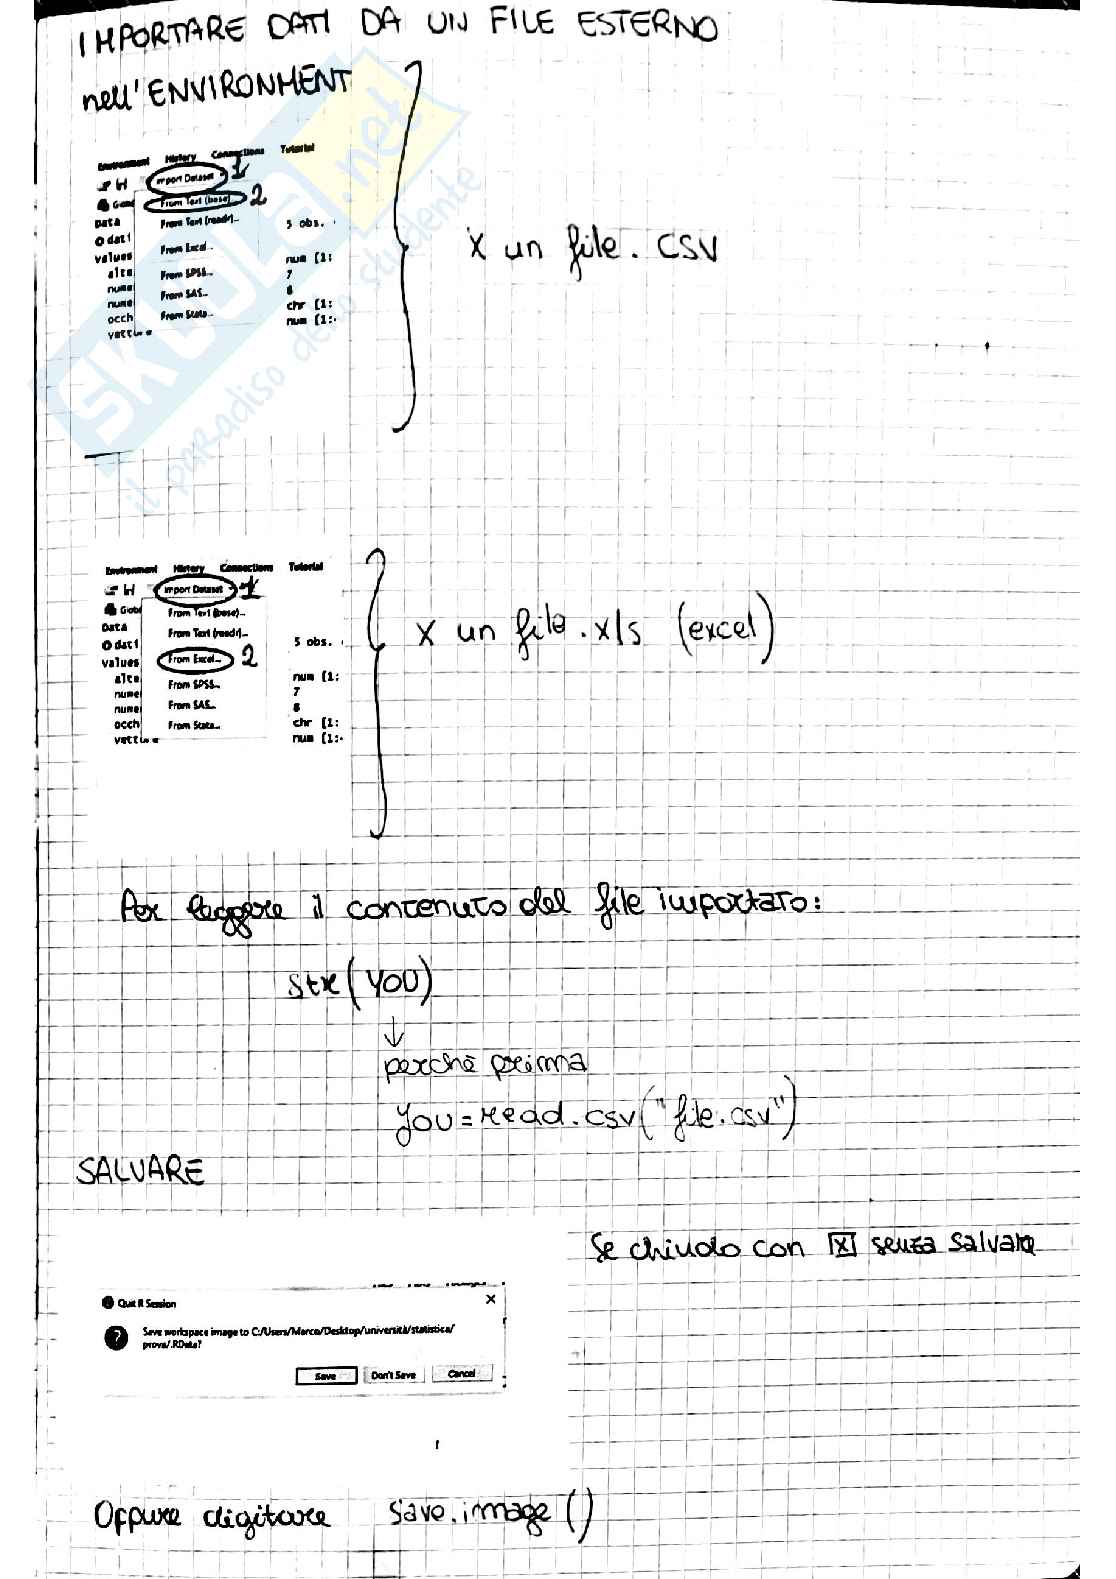 IMPORTARE DATI DA UN FILE ESTERNO
nell'ENVIRONMENT
Environment History Connections Tutorial
Import Dataset 1
From Text (base)... 2
Data From Text (readr)... 5 obs.
dati
values From Excel... num [1:
alte From SPSS... 7
nume From SAS... 8
nume
occh From Stata... chr [1:
vettore num [1:
X un file.csv
SKUOLA.net
il paradiso dello studente
Environment History Connections Tutorial
Import Dataset 1
Glob From Text (base)...
Data From Text (readr)... 5 obs.
dati
values From Excel... 2
alte From SPSS... num [1:
nume 7
nume From SAS... 8
occh From Stata... chr [1:
vettore num [1:
X un file.xls (excel)
Per leggere il contenuto del file importato:
str(YOU)
↓
perchè prima
you=read.csv("file.csv")
SALVARE
Se chiudo con [X] senza salvare
Quit R Session ×
Save workspace image to C:/Users/Marco/Desktop/università/statistica/
prova/.RData?
Save Don't Save Cancel
Oppure digitare save.image()